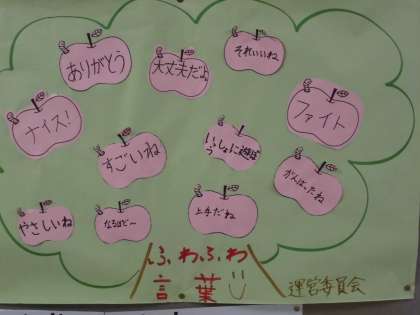 ありがとう
大丈夫だよ
それいいね
ナイス!
すごいね
いっしょに遊ぼう
ファイト
がんばったね
やさしいね
なるほど〜
上手だね
ふわふわ
言葉
運営委員会